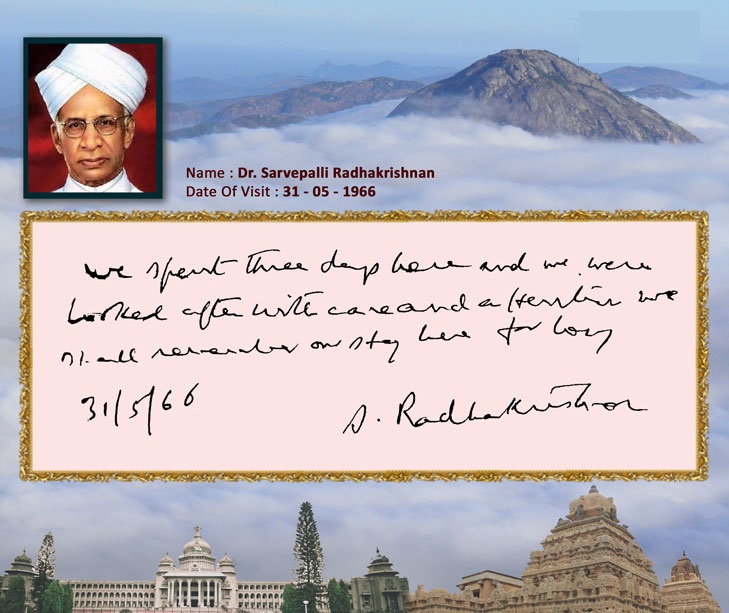 Name : Dr. Sarvepalli Radhakrishnan
Date Of Visit : 31 - 05 - 1966
We spent three days here and we were
looked after with care and attention we
shall remember our stay here for long
31/5/66
S. Radhakrishnan